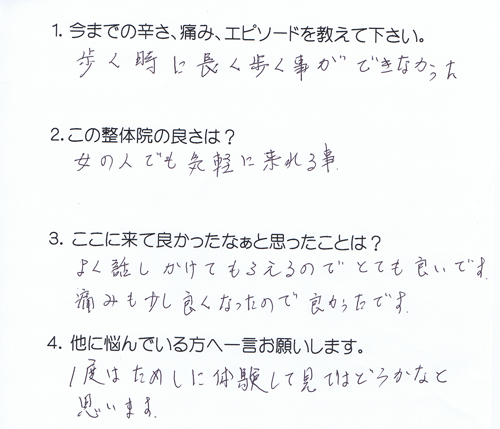 1. 今までの辛さ、痛み、エピソードを教えて下さい。
歩く時に長く歩く事ができなかった
2.この整体院の良さは？
女の人でも気軽に来れる事.
3. ここに来て良かったなぁと思ったことは？
よく話しかけてもらえるのでとても良いです.
痛みも少し良くなったので良かったです.
4. 他に悩んでいる方へ一言お願いします。
1度はためしに体験して見てはどうかなと
思います.